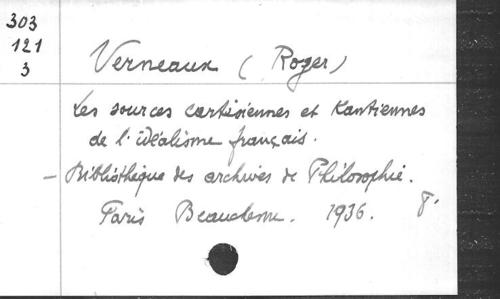 303
121
3
Verneaux (Roger)
Les sources cartésiennes et Kantiennes
de l'idéalisme français.
- Bibliothèque des archives de Philosophie.
Paris Beauchesne. 1936. 8°